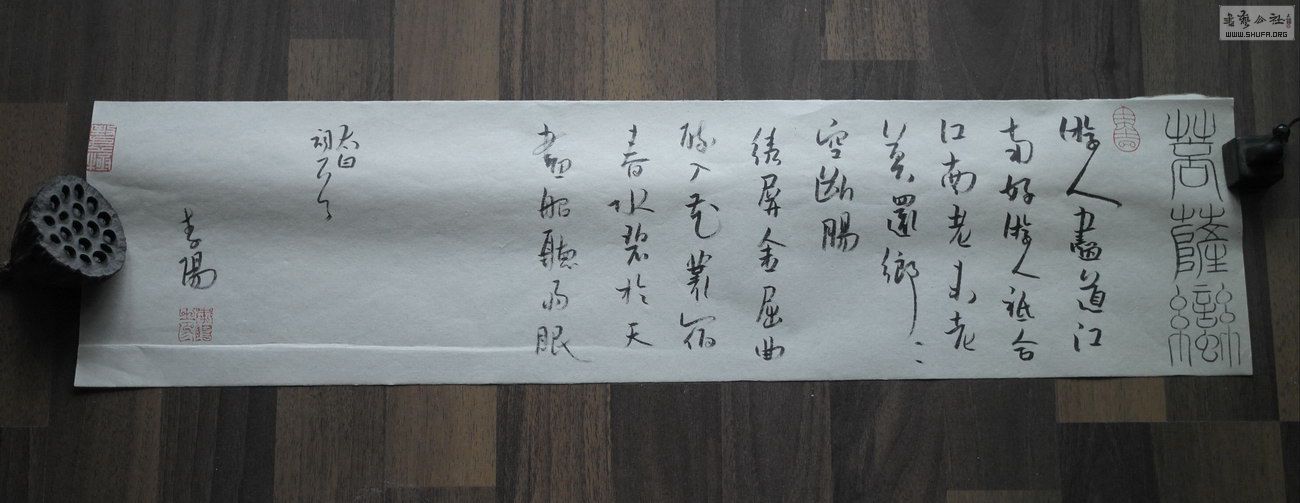 菩薩蠻
游人盡道江
南好游人祗合
江南老未老
莫還鄉〻
空斷腸
綉屏金屈曲
醉入花叢宿
春水碧於天
畫船聽雨眠
太白
詞
陽
書藝公社
WWW.SHUFA.ORG